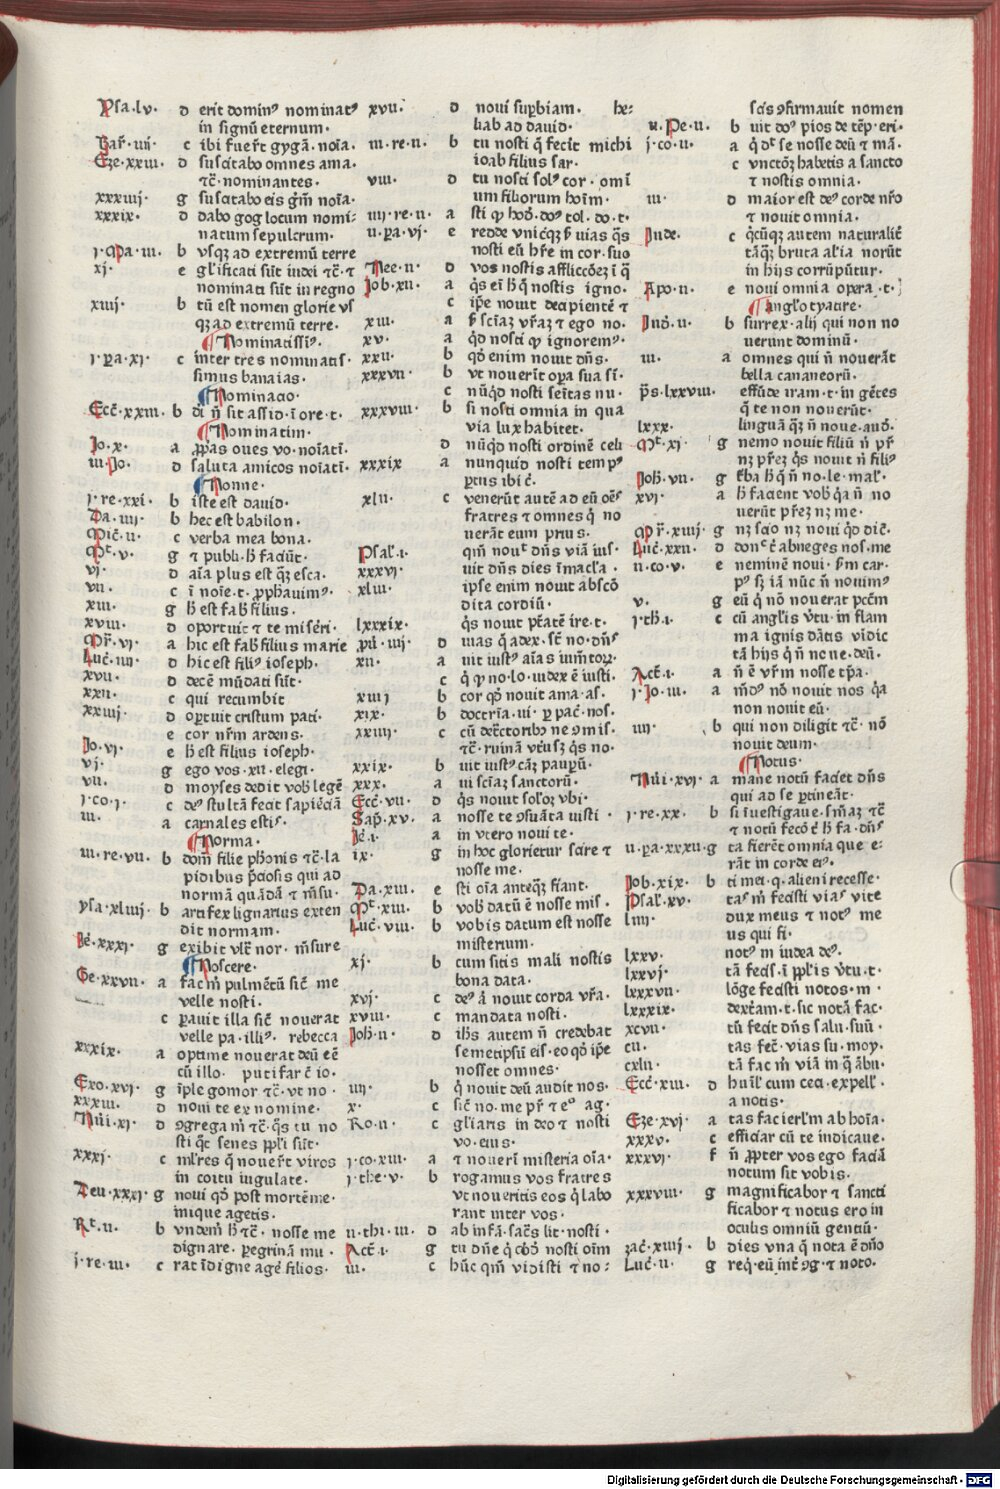 Psa.lv. d erit dominꝰ nominatꝰ
in signū eternum.
Bar̄.iij. c ibi fuer̄t gygā. noīa.
Eze.xxiii. d suscitabo omnes ama.
tc̄. nominantes.
xxxiiij. g suscitabo eis gm̄ noīa.
xxxix. d dabo gog locum nomi-
natum sepulcrum.
j.Ma.iii. b vsqꝫ ad extremū terre
xj. e gl'ificati sūt iudei tc̄. ⁊
nominati sūt in regno
xiiij. b tū est nomen glorie vs
qꝫ ad extremū terre.
Nominatissiꝰ.
j.pa.xj. c inter tres nominatis.
simus banaias.
Nominacio.
Ecc̄.xxiii. b di n̄ sit assid. ī ore.t.
Nominatim.
Jo.x. a ꝓpas oues vo. noīatī.
iii.Jo. d saluta amicos noīatī.
Nonne.
j.re.xxi. b iste est dauid.
Da.iiij. b hec est babilon.
Mic̄.ii. c verba mea bona.
Mt.v. g ⁊ publi. h̄ faciūt.
vj. d aīa plus est qꝫ esca.
vii. c ī noīe.t. ꝓphauimꝰ.
xiii. g h̄ est fab̄ filius.
xviii. d oportuit ⁊ te miseri.
Mr̄.vj. a hic est fab̄ filius marie
Luc̄.iiij. d hic est filiꝰ ioseph.
xvii. d decē mūdati sūt.
xxii. c qui recumbit
xxiiij. d oportuit cristum pati.
e cor nr̄m ardens.
Jo.vj. e h̄ est filius ioseph.
vj. g ego vos. xii. elegi.
vii. d moyses dedit vob̄ legē
j.co.j. c deꝰ stultā fecit sapiēciā
iii. a carnales estis.
Norma.
iii.re.vii. b dom̄ filie pharaonis tc̄. la
pidibus p̄ciosis qui ad
normā quādā ⁊ m̄su.
ysa.xliiij. b artifex lignarius exten
dit normam.
Je.xxxj. g exibit vlt̄ nor. m̄sure
Noscere.
Ge.xxvii. a fac m̄ pulmētū sic̄ me
velle nosti.
c parauit illa sic̄ nouerat
velle pa. illiꝰ. rebecca
xxxix. a optime nouerat deū eē
cū illo. putifar c̄ io.
Exo.xvj. g īple gomor tc̄. vt no.
xxxiii. d noui te ex nomine.
Nūi.xj. d ꝯgrega m̄ tc̄. q̄s tu no
sti qc̄ senes ppl'i sūt.
xxxj. c ml'res q̄ nouer̄t viros
in coitu iugulate.
Deu.xxxj. g noui qd̄ post mortē me.
inique agetis.
Rt.ii. b vndem̄ h̄ tc̄. nosse me
dignare. peregrinā mu.
j.re.iii. c rat īdigne age filios.
xvii. d noui supbiam. he-
liab ad dauid.
iii.re.ii. b tu nosti q̄ fecit michi
ioab filius sar.
viii. d tu nosti solꝰ cor. omī
um filiorum hoīm.
iiij.re.ii. a sti
ii.pa.vj. e redde vnicuiqꝫ ẜ vias q̄s
nosti eū hr̄e in cor. suo
Nee.ii. d vos nostis afflicciōeꝫ ī q̄
Job.xii. a q̄s ei h̄ q̄ nostis igno.
c ip̄e nouit decipientē ⁊
xiii. a ẜ sciaꝫ vr̄aꝫ ⁊ ego no.
xv. a qd̄ nosti q̄ ignoremꝰ.
xxii. b qd̄ enim nouit dn̄s.
xxxvii. b vt nouer̄t opa sua sī.
c nūqd̄ nosti seītas nu.
xxxviii. b si nosti omnia in qua
via lux habitet.
d nūqd̄ nosti ordinē celi
xxxix a nunquid nosti tempꝰ
ptus ibi c̄.
xlii. c venerūt autē ad eū oēs
fratres ⁊ omnes q̄ no
uerāt eum prius.
Psal'.i. qm̄ nouit dn̄s viā ius.
xxxvj. uit dn̄s dies īmacla.
xliii. ipse enim nouit abscō
dita cordiū.
lxxxix. q̄s nouit ptātē ire.t.
pū.iiij. d uias q̄ a dex. sc̄ no. dn̄s
xii. a uit iustꝰ aīas iumtoꝝ.
c q̄ ꝙ no. lo. iudex ē iusti.
xiiij b cor qd̄ nouit ama. as.
xix. b doctrīa. ui. p pac̄. nos.
xxiiij. c cū detc̄toribꝰ ne ꝯmis.
tc̄. ruinā vtriusqꝫ q̄s no.
xxix. b uit iustꝰ cāꝫ paupū.
xxx. a ui sciaꝫ sanctorū.
Ecc̄.vii. d q̄s nouit solꝰ vbi.
Sap.xv. a nosse te ꝯsūata iusti.
Je.i. a in vtero noui te.
ix. g in hoc glorietur scire ⁊
nosse me.
Da.xiii. e sti oīa anteqꝫ fiant.
Mt.xiii. b vob̄ datū ē nosse mis.
Luc̄.viii. b vobis datum est nosse
misterium.
xj. b cum sitis mali nostis
bona data.
xvj. c deꝰ a nouit corda vr̄a.
xviii. c mandata nosti.
Joh̄.ii. d ihs̄ autem n̄ credebat
semetipsū eis. eo qd̄ ip̄e
nosset omnes.
iiij. b q̄ nouit deū audit nos.
x. c sic̄ no. me pr̄ ⁊ eꝰ ag.
Ro.ii. c gl'iaris in deo ⁊ nosti
vo. eius.
j.co.xiii. a ⁊ nouerī misteria oīa.
j.the.v. b rogamus vos fratres
vt noueritis eos q̄ labo
rant inter vos.
ii.thi.iii. d ab infā. sac̄s lit. nosti.
Act̄.i. g tu dn̄e q̄ corda nosti oīm
iii. c hūc qm̄ vidisti ⁊ no-
scīs ꝯfirmauit nomen
ii.Pe.ii. b uit doꝰ pios de tēp. eri.
j.co.ii. a q̄ dt̄ se nosse deū ⁊ mā.
c vnctōꝫ habetis a sancto
⁊ nostis omnia.
iii. d maior est deꝰ corde nr̄o
⁊ nouit omnia.
Jude. c qc̄ūqꝫ autem naturalit̄
tāqꝫ bruta al'ia norūt
in hijs corrūpūtur.
Apo.ii. e noui omnia opera.t.
Anglotyaare.
Jud̄.ii. b surrex. alij qui non no
uerunt dominū.
iii. a omnes qui n̄ nouerāt
bella cananeorū.
ps̄.lxxviii. effūde iram.t. in gētes
q̄ te non nouerūt.
lxxx. linguā qꝫ n̄ noue. aud.
Mt.xj. g nemo nouit filiū n̄ pr̄
nꝫ pr̄eꝫ q̄s nouit n̄ filiꝰ
Joh̄.vii. g t̄ba h̄ q̄ n̄ no. le. mal'.
xvj. a h̄ facient vob̄ q̄a n̄ no
uerūt pr̄eꝫ nꝫ me.
Mr̄.xiiij. g nꝫ scio nꝫ noui qd̄ dic̄.
Luc̄.xxii. d donec̄ abneges nos. me
ii.co.v. e neminē noui. ẜm car.
pꝰ sꝫ iā nūc n̄ nouimꝰ
v. g eū q̄ nō nouerat pcc̄m
j.th̄.i. c cū angl'is v̄tu. in flam
ma ignis dātis vīdic
tā hijs q̄ n̄ no ne. deū.
Act̄.i. a n̄ ē vr̄m nosse tp̄a.
j.Jo.iii. a m̄dꝰ nō nouit nos q̄a
non nouit eū.
iiij. b qui non diligit tc̄. nō
nouit deum.
Notus.
Nūi.xvj. a mane notū faciet dn̄s
qui ad se ptineāt.
j.re.xx. b si īuestigaue. sm̄aꝫ tc̄
⁊ notū fecō c̄ h̄ fa. dn̄s
ii.pa.xxxii. g ta fierēt omnia que e-
rāt in corde eiꝰ.
Job.xix. b ti mei. q. alieni recesse.
Psal'.xv. tas m̄ fecisti vias vite
liiij. dux meus ⁊ notꝰ me
us qui si.
lxxv. notꝰ in iudea deꝰ.
lxxvj. tā fecis. ī ppl'is v̄tu.t.
lxxxvii. lōge fecisti notos. m.
lxxxix. dext̄am.t. sic notā fac.
xcvii. tū fecit dn̄s salu. suū.
cii. tas fec̄. vias su. moy.
cxlii. tā fac m̄ viā in q̄ ābu.
Ecc̄.xiii. d huīl' cum ceci. expell'.
a notis.
Eze.xvj. a tas fac ierl'm abhoīa.
xxxv. c efficiar cū te iudicaue.
xxxvj. f n̄ ꝓpter vos ego faciā
notum sit vobis.
xxxviii. g magnificabor ⁊ sancti
ficabor ⁊ notus ero in
oculis omniū gentiū.
zac̄.xiiij. b dies vna q̄ nota ē dn̄o
Luc̄.ii. g req̄. eū int̄ ꝯg. ⁊ noto.
Digitalisierung gefördert durch die Deutsche Forschungsgemeinschaft - DFG